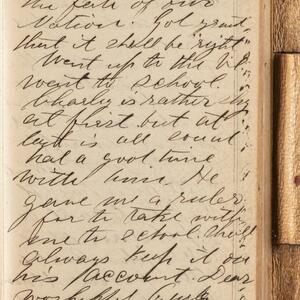 the fate of our
Nation. God grant
that it shall be "right"
Went up to the
went to school.
Charley is rather shy
at first but at
last is all
had a good time
with him. He
gave me a ruler
for to take with
me to school. Shall
always keep it on
his account. Dear